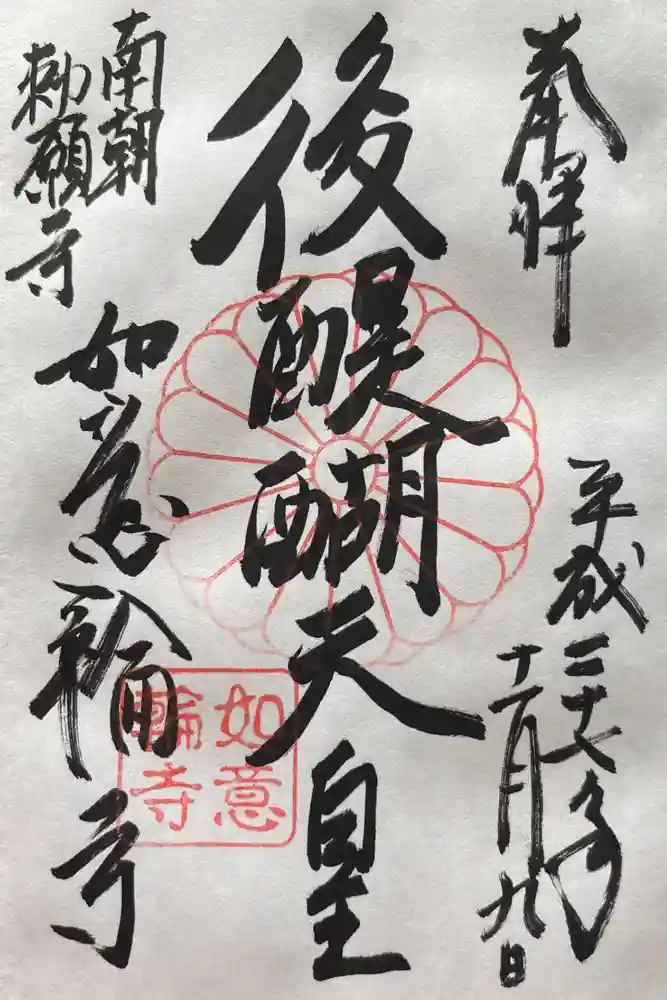 奉拝
平成二十七年
十一月九日
後醍醐天皇
南朝
勅願寺
如意輪寺
如意
輪寺